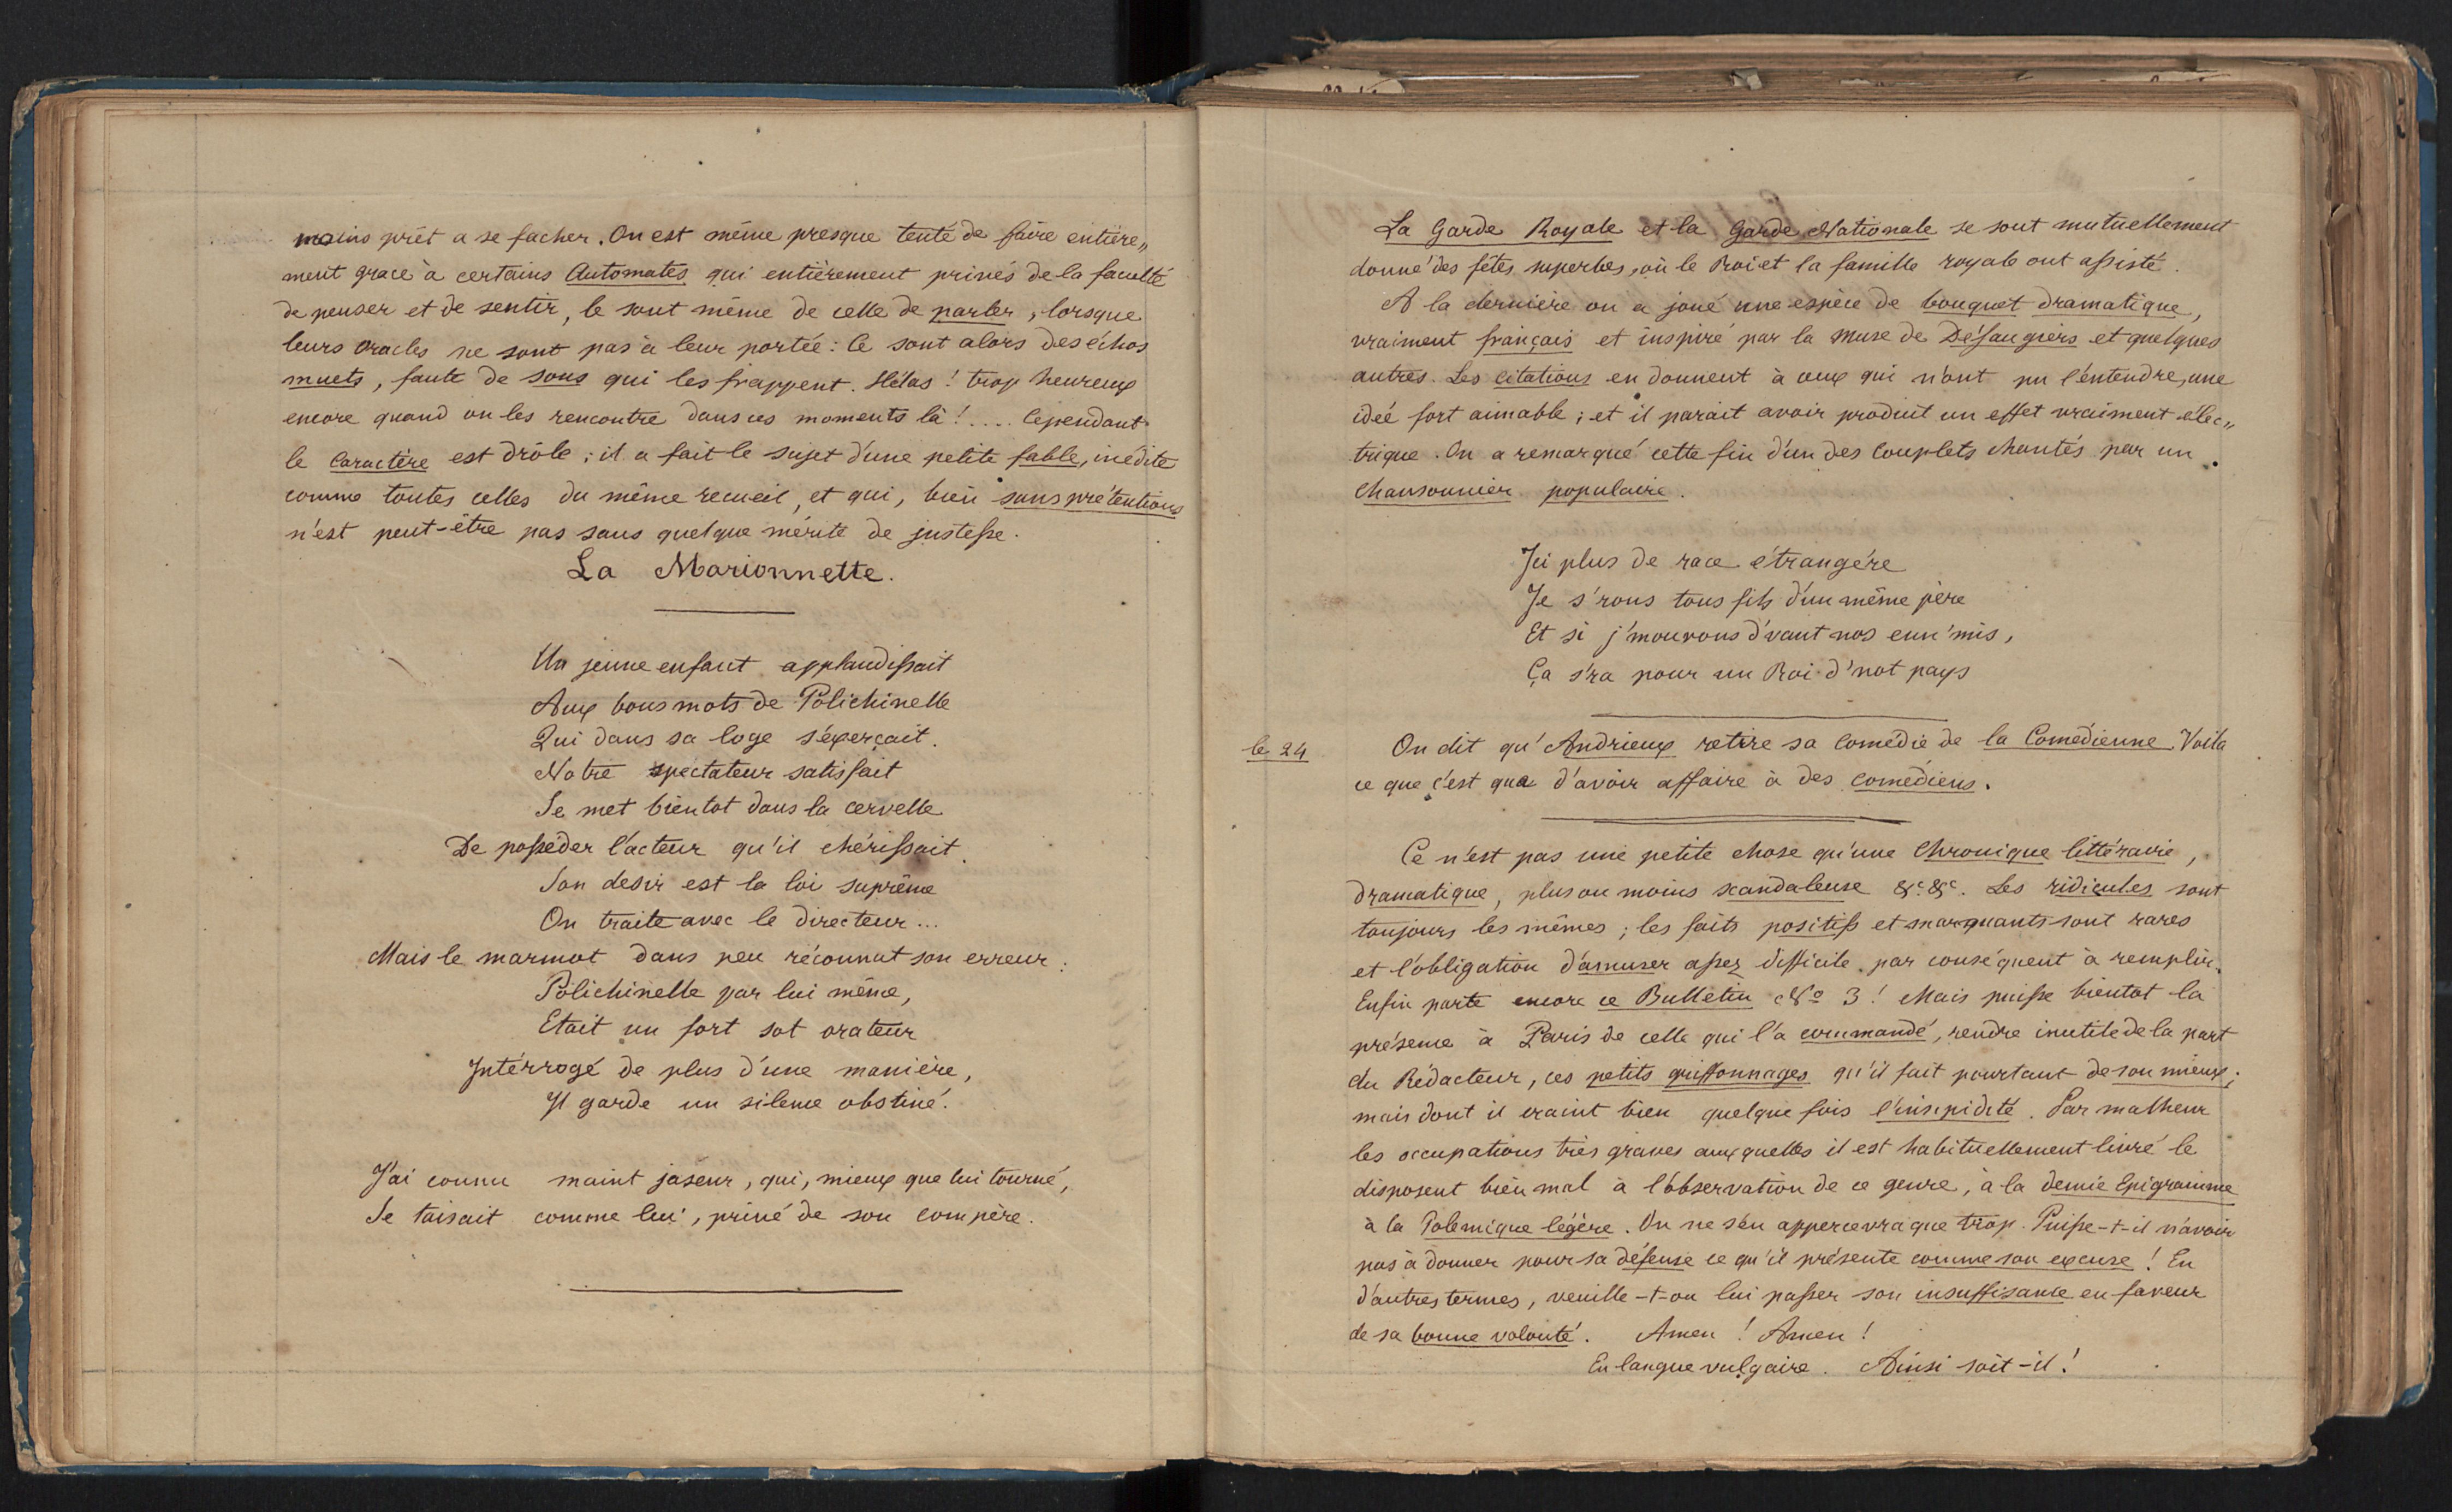 moins prêt a se facher. On est même presque tenté de faire entière„
ment grace à certains Automates qui entièrement privés de la faculté
de penser et de sentir, le sont même de celle de parler, lorsque
leurs oracles ne sont pas à leur portée : Ce sont alors des échos
muets, faute de sons qui les frappent. Hélas ! trop heureux
encore quand on les rencontre dans ces moments là ! .... Cependant
le Caractère est drôle ; il a fait le sujet d'une petite fable, inédite
comme toutes celles du même recueil, et qui, bien sans prétentions
n'est peut-être pas sans quelque mérite de justesse.
La Marionnette.
Un jeune enfant applaudissait
Aux bons mots de Polichinelle
Qui dans sa loge s'éxerçait.
Notre spectateur satisfait
Se met bientot dans la cervelle
De posséder l'acteur qu'il chérissait.
Son desir est la loi suprême
On traite avec le directeur ...
Mais le marmot dans peu réconnut son erreur :
Polichinelle par lui même,
Etait un fort sot orateur
Intérrogé de plus d'une manière,
Il garde un silence obstiné.
J'ai connu maint jaseur, qui, mieux que lui tourné,
Se taisait comme lui, privé de son compère.
La Garde Royale et la Garde Nationale se sont mutuellement
donné des fêtes superbes, où le Roi et la famille royale ont assisté.
A la dernière on a joué une espèce de bouquet dramatique,
vraiment français et inspiré par la muse de Désaugiers et quelques
autres. Les citations en donnent à ceux qui n'ont pu l'entendre, une
idée fort aimable ; et il parait avoir produit un effet vraiment élec„
trique. On a remarqué cette fin d'un des Couplets chantés par un
Chansonnier populaire.
Ici plus de race étrangère
Je s'rons tous fils d'un même père
Et si j'mourons d'vant nos enn'mis,
Ça s'ra pour un Roi d'not pays
le 24
On dit qu'Andrieux retire sa Comédie de la Comédienne. Voila
ce que c'est que d'avoir affaire à des comédiens.
Ce n'est pas une petite chose qu'une Chronique littéraire,
dramatique, plus ou moins scandaleuse &c. &c. Les ridicules sont
toujours les mêmes ; les faits positifs et marquants sont rares
et l'obligation d'amuser assez difficile par conséquent à remplir.
Enfin parte encore ce Bulletin No 3 ! Mais puisse bientot la
présence à Paris de celle qui l'a commandé, rendre inutile de la part
du Rédacteur, ces petits griffonnages qu'il fait pourtant de son mieux ;
mais dont il craint bien quelque fois l'insipidité. Par malheur
les occupations très graves auxquelles il est habituellement livré le
disposent bien mal à l'observation de ce genre, à la demie Epigramme
à la Polemique légère. On ne s'en appercevra que trop. Puisse-t-il n'avoir
pas à donner pour sa défense ce qu'il présente comme son excuse ! En
d'autres termes, veuille-t-on lui passer son insuffisance en faveur
de sa bonne volonté. Amen ! Amen !
En langue vulgaire. Ainsi soit-il !